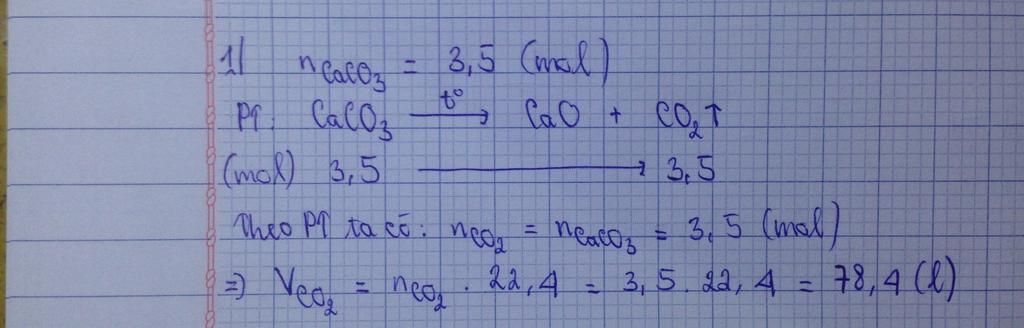 1/ nCaCO₃ = 3,5 (mol)
PT: CaCO₃ t° → CaO + CO₂↑
(mol) 3,5 → 3,5
Theo PT ta có: nCO₂ = nCaCO₃ = 3,5 (mol)
⇒ VCO₂ = nCO₂ . 22,4 = 3,5 . 22,4 = 78,4 (l)